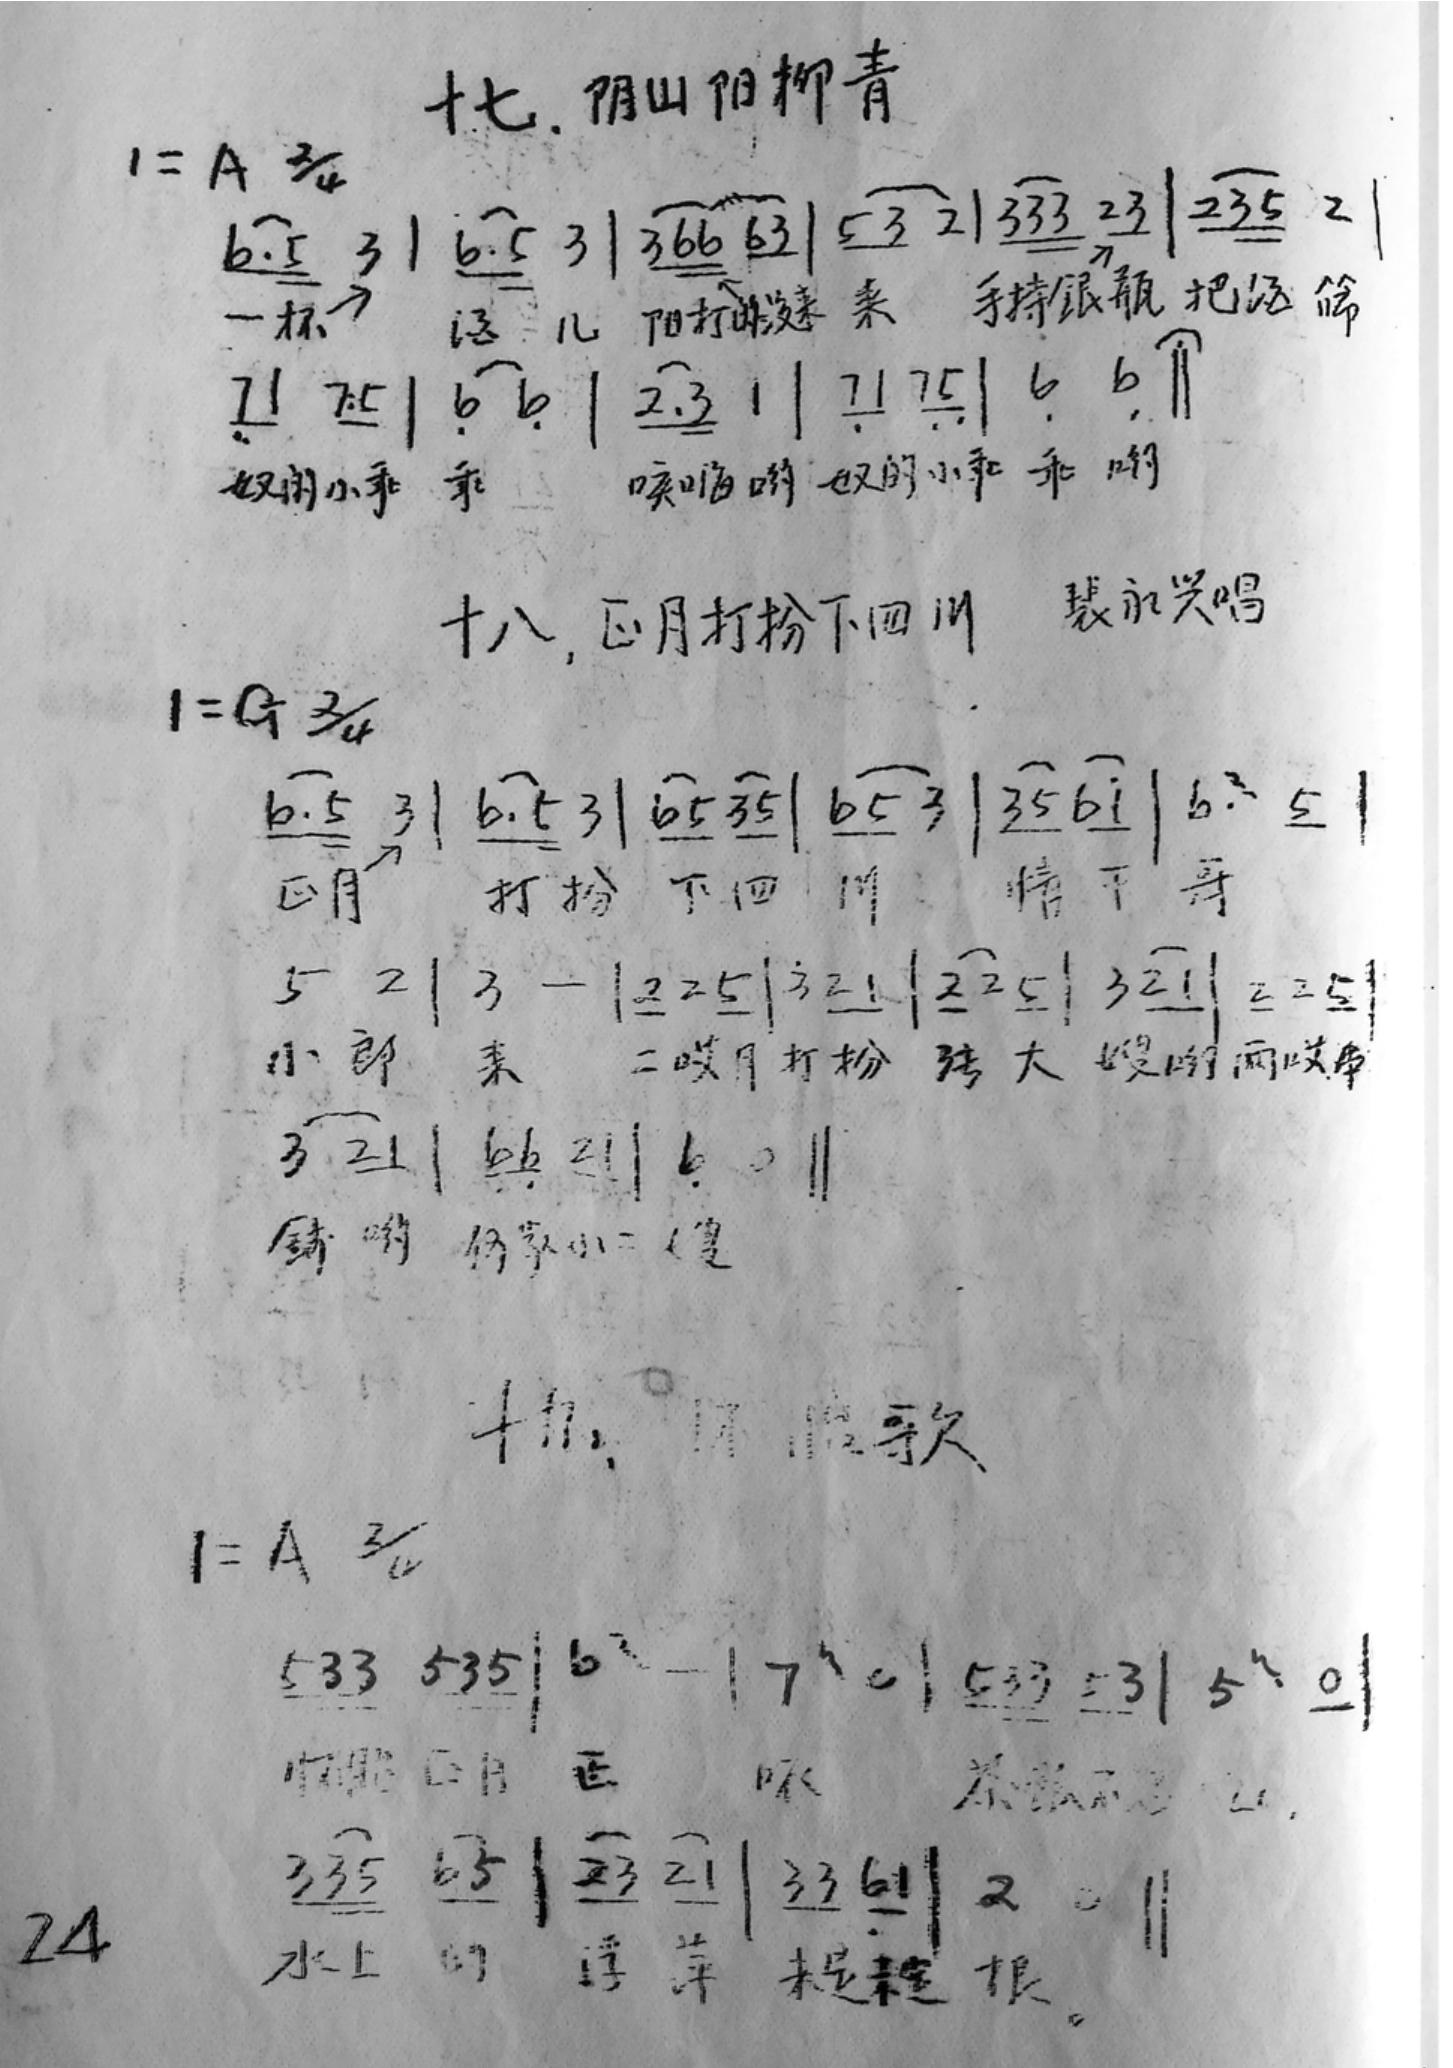 十七.阴山阳柳青
1=A 2/4
6.5 3 | 6.5 3 | 366 63 | 53 2 | 333 23 | 235 2 |
一杯 酒 儿 阳打 来 手持银瓶 把酒 筛
71 75 | 6 6 | 2.3 1 | 71 75 | 6 6 ‖
奴的小乖 乖 唉嗨哟 奴的小乖 乖 哟
十八,正月打扮下四川 裴永兴唱
1=G 2/4
6.5 3 | 6.5 3 | 65 35 | 65 3 | 35 61 | 6 5 |
正月 打扮 下四 川 情干哥
5 2 | 3 — | 2 2 5 | 3 21 | 2 2 5 | 3 21 | 2 2 5 |
小郎 来 二哎月打扮 张大 嫂哟 两哎本
3 21 | 66 21 | 6 0 ‖
钱哟 小二
十九, 怀胎歌
1=A 2/4
533 535 | 6 — | 7 0 | 533 53 | 5 0 |
怀胎正月 正 咳 茶饭不
335 65 | 23 21 | 33 61 | 2 0 ‖
水上 的 浮萍 未定 根。
24